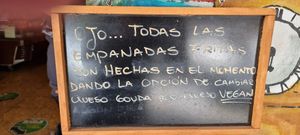 OJO... TODAS LAS
EMPANADAS FRITAS
SON HECHAS EN EL MOMENTO
DANDO LA OPCIÓN DE CAMBIAR
QUESO GOUDA POR QUESO VEGAN